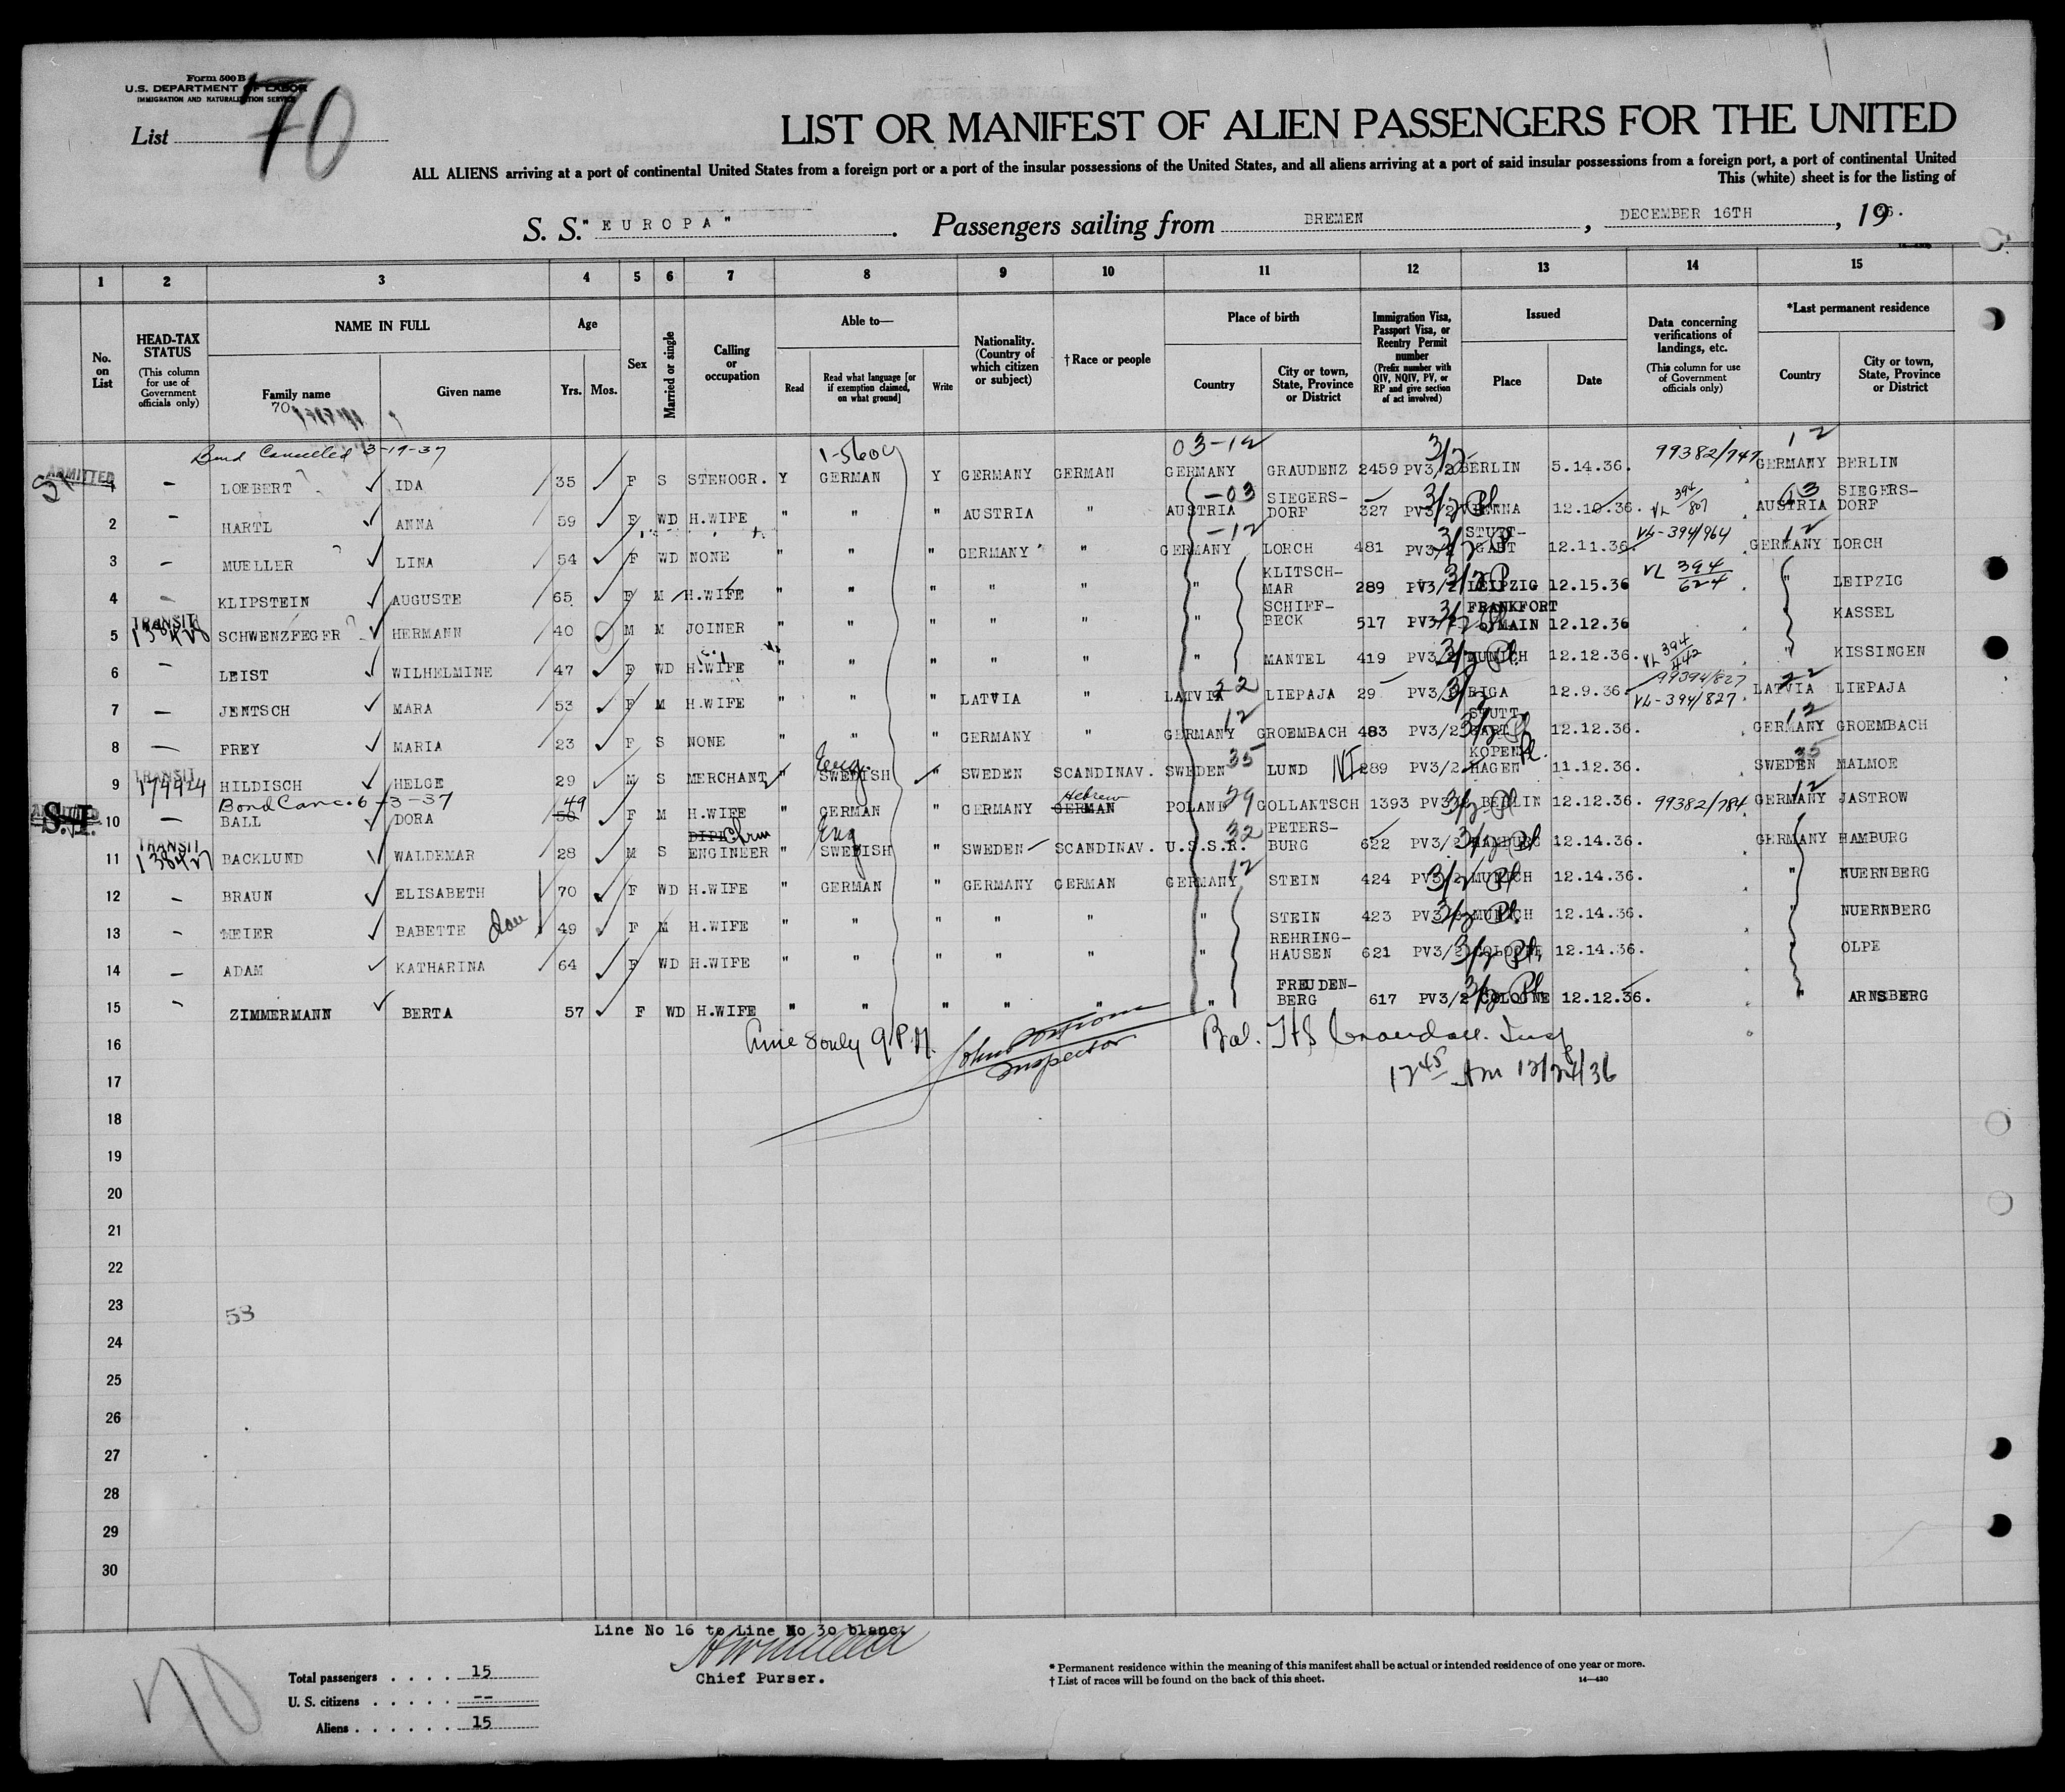 Form 500 B
U.S. DEPARTMENT OF LABOR
IMMIGRATION AND NATURALIZATION SERVICE
List 70
LIST OR MANIFEST OF ALIEN PASSENGERS FOR THE UNITED
ALL ALIENS arriving at a port of continental United States from a foreign port or a port of the insular possessions of the United States, and all aliens arriving at a port of said insular possessions from a foreign port, a port of continental United
This (white) sheet is for the listing of
S. S. "EUROPA". Passengers sailing from BREMEN, DECEMBER 16TH, 1936.
1 2 3 4 5 6 7 8 9 10 11 12 13 14 15
No. on List
HEAD-TAX STATUS (This column for use of Government officials only)
NAME IN FULL
Family name
Given name
Age
Yrs. Mos.
Sex
Married or single
Calling or occupation
Able to—
Read
Read what language [or if exemption claimed, on what ground]
Write
Nationality. (Country of which citizen or subject)
†Race or people
Place of birth
Country
City or town, State, Province or District
Immigration Visa, Passport Visa, or Reentry Permit number (Prefix number with QIV, NQIV, PV, or RP and give section of act involved)
Issued
Place
Date
Data concerning verifications of landings, etc. (This column for use of Government officials only)
*Last permanent residence
Country
City or town, State, Province or District
70
Bond Cancelled 3-19-37 03-12 3/2 99382/747 12
ADMITTED SI 1 — LOEBERT IDA 35 F S STENOGR. Y GERMAN Y GERMANY GERMAN GERMANY GRAUDENZ 2459 PV3/2 BERLIN 5.14.36. GERMANY BERLIN
2 — HARTL ANNA 59 F WD H.WIFE " " " AUSTRIA " AUSTRIA -03 SIEGERS-DORF 327 PV3/2 VIENNA 12.10.36. VL 394/807 AUSTRIA 03 SIEGERS-DORF
3 — MUELLER LINA 54 F WD NONE " " " GERMANY " GERMANY -12 LORCH 481 PV3/2 STUTT-GART 12.11.36. VL-394/964 GERMANY 12 LORCH
4 — KLIPSTEIN AUGUSTE 65 F M H.WIFE " " " " " " KLITSCH-MAR 289 PV3/2 LEIPZIG 12.15.36 VL 394/624 " LEIPZIG
TRANSIT 5 SCHWENZFEGER HERMANN 40 M M JOINER " " " " " " SCHIFF-BECK 517 PV3/2 FRANKFORT O/MAIN 12.12.36 KASSEL
6 — LEIST WILHELMINE 47 F WD H.WIFE " " " " " " MANTEL 419 PV3/2 MUNICH 12.12.36. VL 394/442 " KISSINGEN
7 — JENTSCH MARA 53 F M H.WIFE " " " LATVIA " LATVIA 22 LIEPAJA 29 PV3/2 RIGA 12.9.36. 99394/827 VL-394/827. LATVIA 22 LIEPAJA
8 — FREY MARIA 23 F S NONE " " " GERMANY GERMANY 12 GROEMBACH 483 PV3/2 STUTT-GART 12.12.36. GERMANY 12 GROEMBACH
TRANSIT 179924 9 HILDISCH HELGE 29 M S MERCHANT " Eng. SWEDISH " SWEDEN SCANDINAV. SWEDEN 35 LUND 289 PV3/2 KOPEN-HAGEN 11.12.36. SWEDEN 35 MALMOE
Bond Canc. 6-3-37 49 Hebrew
S.I. 10 — BALL DORA 50 F M H.WIFE " GERMAN " GERMANY GERMAN POLAND 29 GOLLANTSCH 1393 PV3/2 BERLIN 12.12.36. 99382/784 GERMANY 12 JASTROW
TRANSIT 11 BACKLUND WALDEMAR 28 M S DIPL ENGINEER " Eng SWEDISH " SWEDEN SCANDINAV. U.S.S.R. 32 PETERS-BURG 622 PV3/2 HAMBURG 12.14.36. GERMANY HAMBURG
12 — BRAUN ELISABETH 70 F WD H.WIFE " GERMAN " GERMANY GERMAN GERMANY 12 STEIN 424 PV3/2 MUNICH 12.14.36. " NUERNBERG
13 — MEIER BABETTE 49 F M H.WIFE " " " " " " STEIN 423 PV3/2 MUNICH 12.14.36. " NUERNBERG
14 — ADAM KATHARINA 64 F WD H.WIFE " " " " " " REHRING-HAUSEN 621 PV3/2 COLOGNE 12.14.36. " OLPE
15 — ZIMMERMANN BERTA 57 F WD H.WIFE " " " " " " FREUDEN-BERG 617 PV3/2 COLOGNE 12.12.36. " ARNSBERG
16 9 P.M. Inspector Bal.
17 12 45 Am 12/24/36
18
19
20
21
22
23 53
24
25
26
27
28
29
30
Line No 16 to Line No 30 blanc.
Chief Purser.
70
Total passengers . . . . 15
U. S. citizens . . . . . --
Aliens . . . . . . 15
* Permanent residence within the meaning of this manifest shall be actual or intended residence of one year or more.
† List of races will be found on the back of this sheet.
14—430